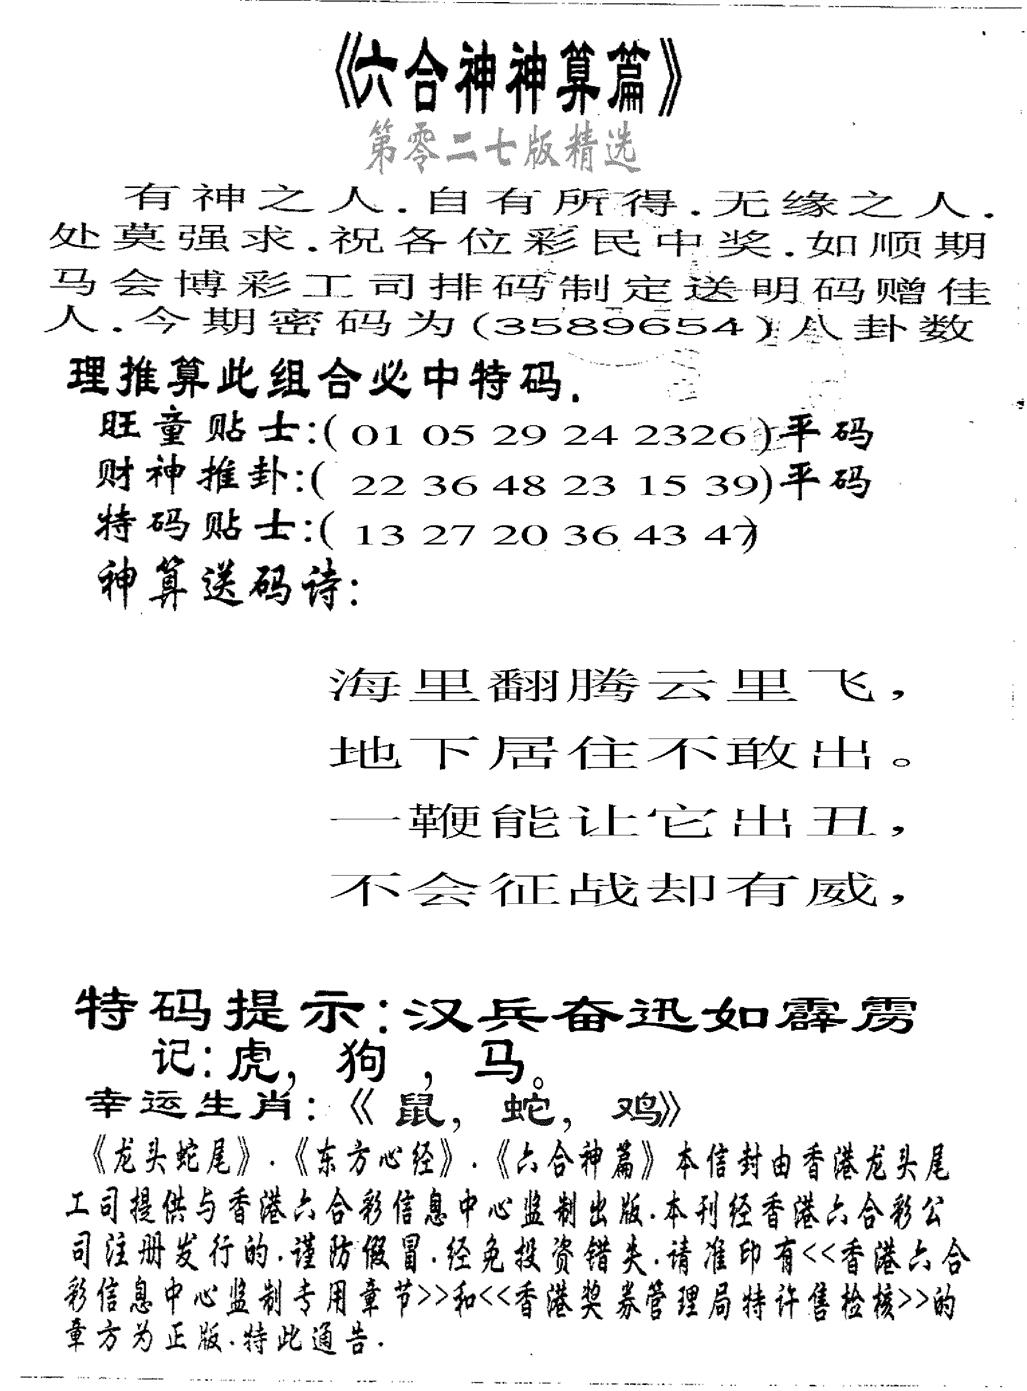 《六合神神算篇》
第零二七版精选
有神之人.自有所得.无缘之人.
处莫强求.祝各位彩民中奖.如顺期
马会博彩工司排码制定送明码赠佳
人.今期密码为(3589654)八卦数
理推算此组合必中特码.
旺童贴士:(01 05 29 24 2326)平码
财神推卦:(22 36 48 23 15 39)平码
特码贴士:(13 27 20 36 43 47)
神算送码诗:
海里翻腾云里飞,
地下居住不敢出。
一鞭能让它出丑,
不会征战却有威,
特码提示:汉兵奋迅如霹雳
记:虎,狗,马。
幸运生肖:《鼠,蛇,鸡》
《龙头蛇尾》.《东方心经》.《六合神篇》本信封由香港龙头尾
工司提供与香港六合彩信息中心监制出版.本刊经香港六合彩公
司注册发行的.谨防假冒.经免投资错失.请准印有<<香港六合
彩信息中心监制专用章节>>和<<香港奖券管理局特许售检核>>的
章方为正版.特此通告.